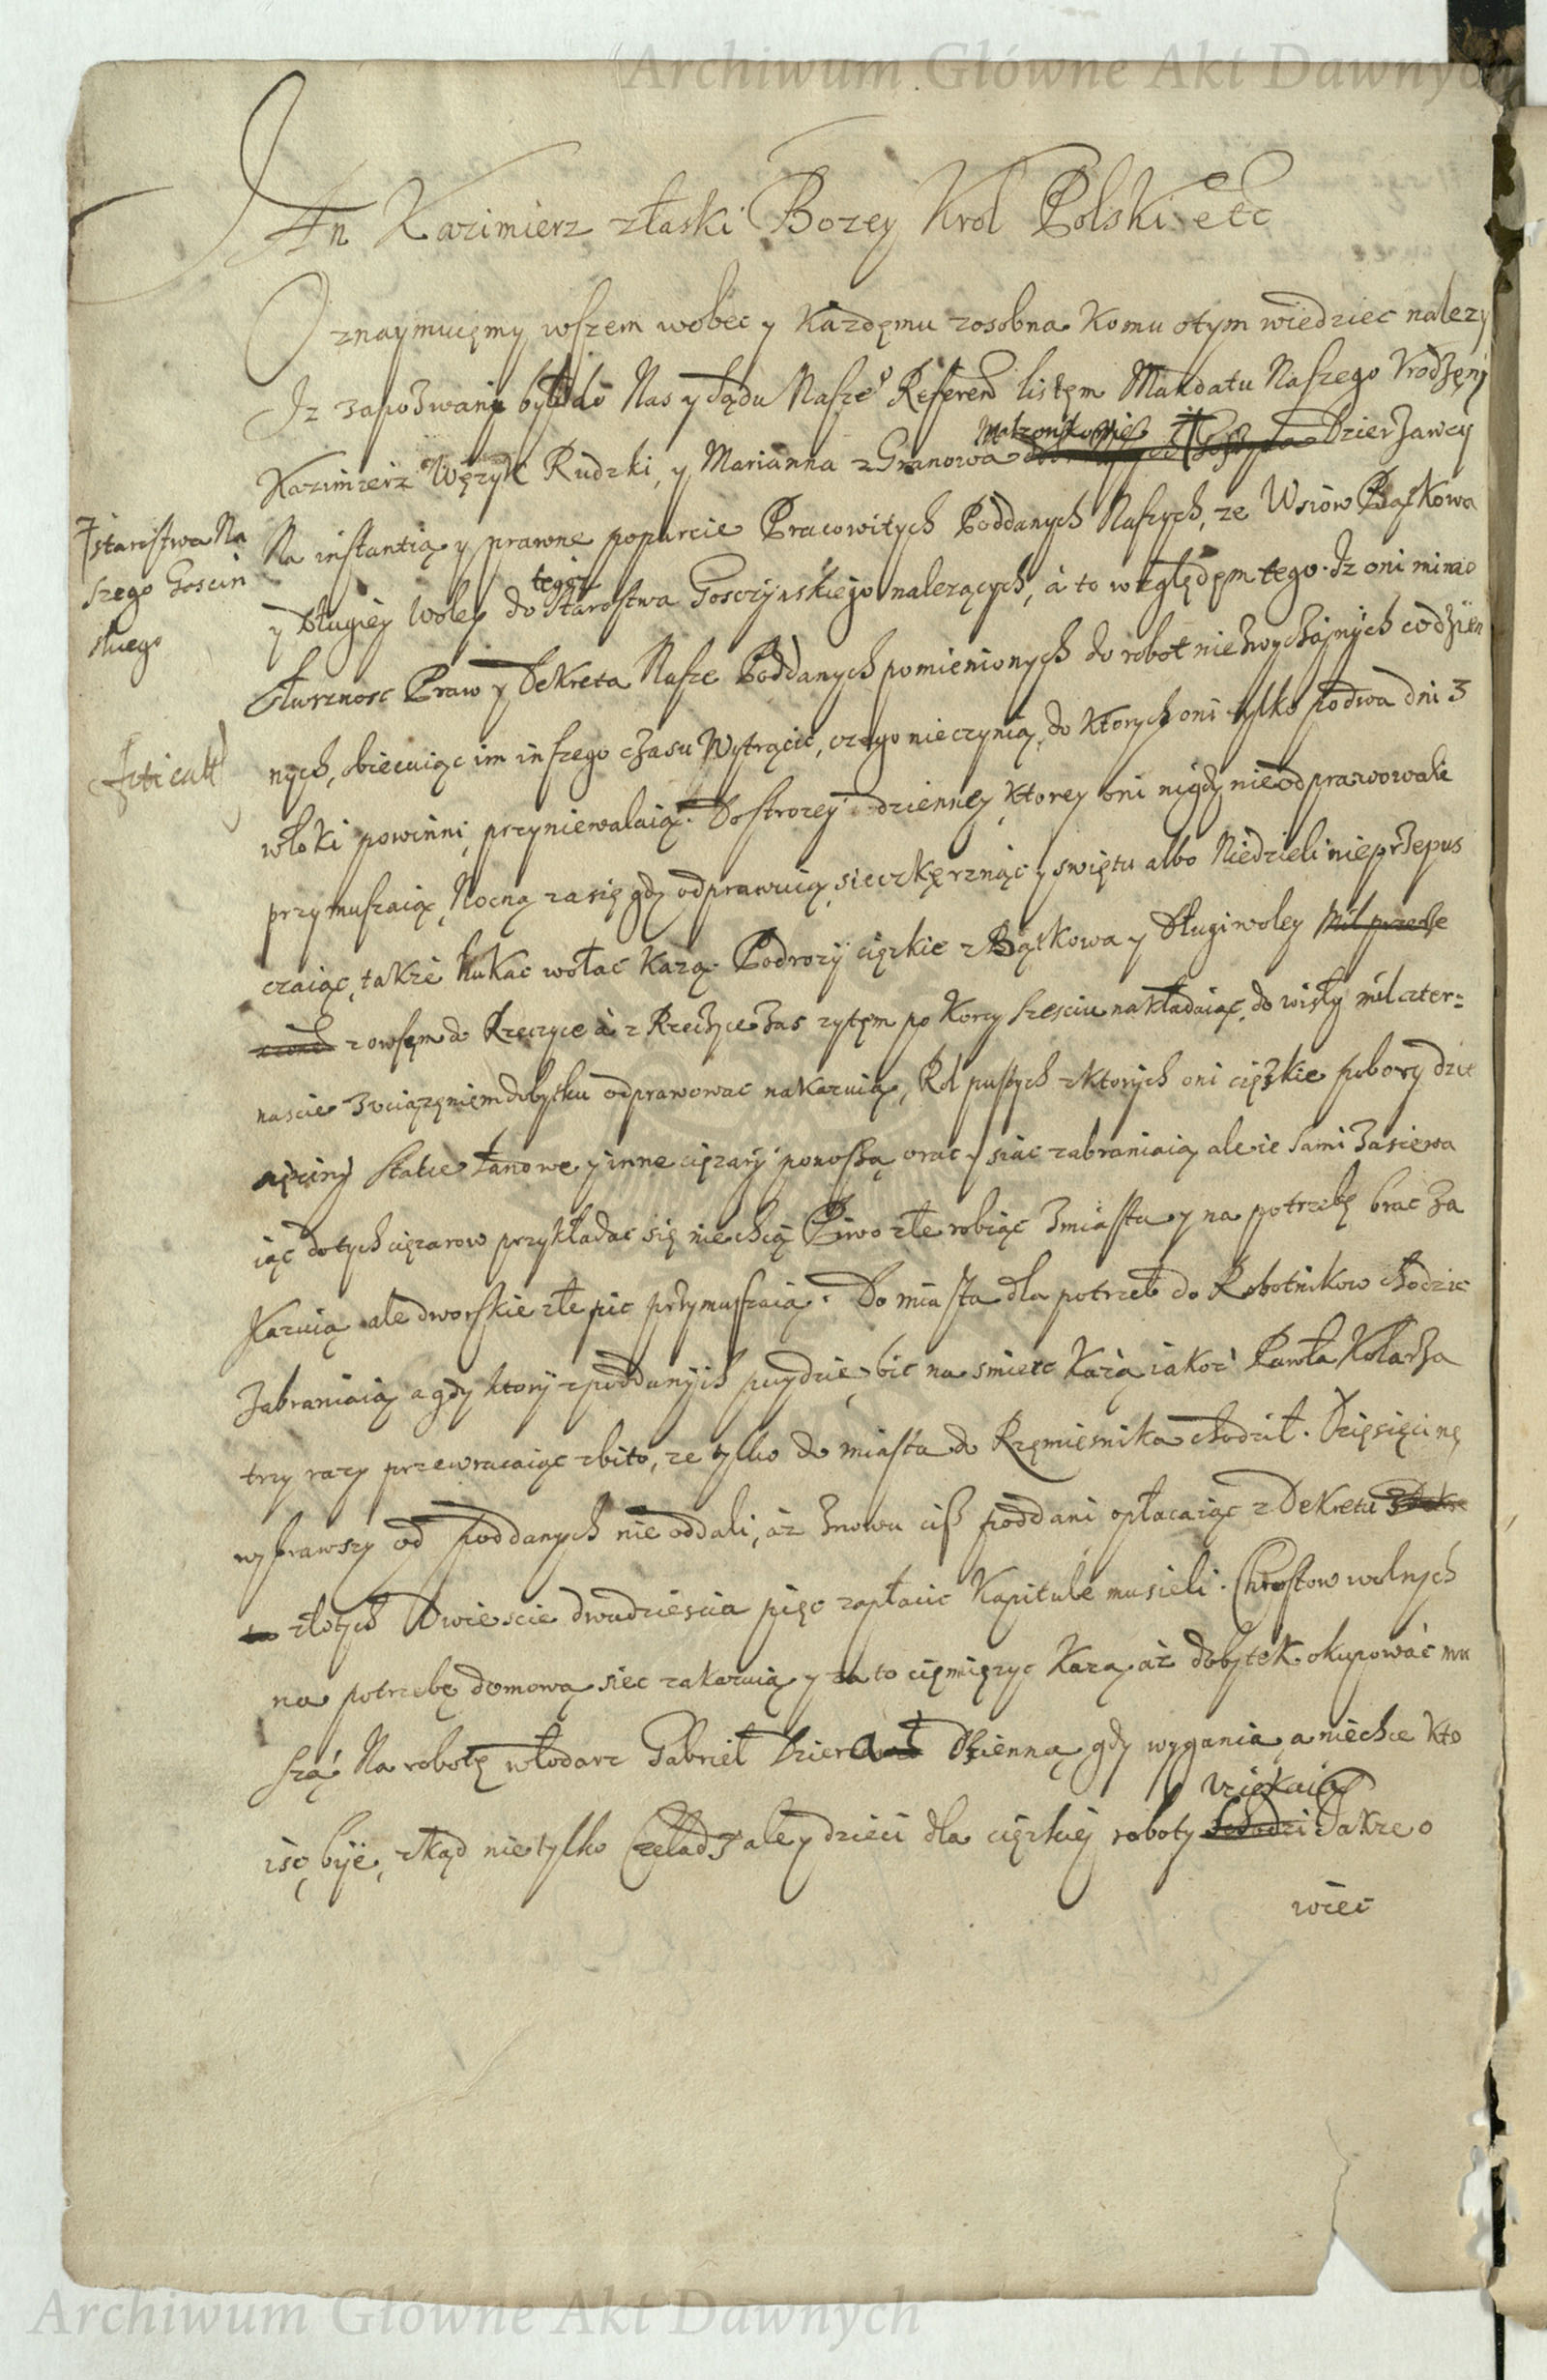 Archiwum Główne Akt Dawnych
Jan Kazimierz z łaski Bozey Krol Polski etc
Oznaymuięmy wszem wobec y każdęmu zosobna komu otym wiedziec nalezy
Iz zapozwani byli do Nas y Sądu Nasze° Referen listęm Mandatu Naszego Vrodzęni
Małzonkowie ‡
Kazimierz Węzyk Rudzki, y Marianna z Granowa Dzierzawcy
‡ starostwa Na
szego Goscin
skiego
Na instantią y prawne poparcie Pracowitych Poddanych Naszych, ze Wsiow Bąskowa
tegoz
y Długiey Woley do Starostwa Goszczynskiego nalezących, a to względęm tego. Iz oni mimo
słusznosc Praw y Dekreta Nasze Poddanych pomienionych do robot niezwyczajnych codzien
nych, obiecuiąc im inszego czasu wytrącic, czego nieczynią, do ktorych oni tylko po dwa dni z
włoki powinni, przyniewalaią. Do strozey dzienney, ktorey oni nigdy nieodprawowali
przymuszaią, Nocną zasię gdy odprawuią, sieczkę rznąc y swięta albo Niedzieli nieprzepus
czaiąc, takze hukac wołac kazą. Podrozy cięzkie z Bąskowa y Długiwoley mil przede
z owsęm do Rzeczyce a z Rzeczyce zas zytęm po korcy szesciu nakładaiąc, do wisły mil czter=
nascie z uciązęniem dobytku odprawowac nakazuią, Rol pustych z ktorych oni cięzkie pobory dzie
sięciny stacie łanowe y inne cięzary ponoszą orac y siac zabraniaią ale ie sami zasiewa
iąc do tych cięzarow przykładac się niechcą Piwo złe robiąc z miasta y na potrzebę brac za
kazuią ale dworskie złe pic przymuszaią. Do miasta dla potrzeb do Robotnikow chodzic
zabraniaią a gdy ktory z poddanych puydzie, bic na smierc kazą iakoz Pawła Kołodza
trzy razy przewracaiąc zbito, ze tylko do miasta do Rzęmiesnika chodził. Dziesięcinę
wybrawszy od poddanych nie oddali, az znowu ciz poddani opłacaiąc z Dekretu
złotych Dwiescie dwadziescia pięc zapłacic Kapitule musieli. Chrostow wolnych
na potrzebę domową siec zakazuią y za to cięmięzyc kazą az dobytek okupowac mu
szą. Na robotę włodarz Gabriel Dzienną gdy wygania, a niechce kto
isc, biie, zkąd nietylko czeladz ale y dzieci dla cięzkiey roboty
vciekaią
Takze o
wiec
Archiwum Główne Akt Dawnych